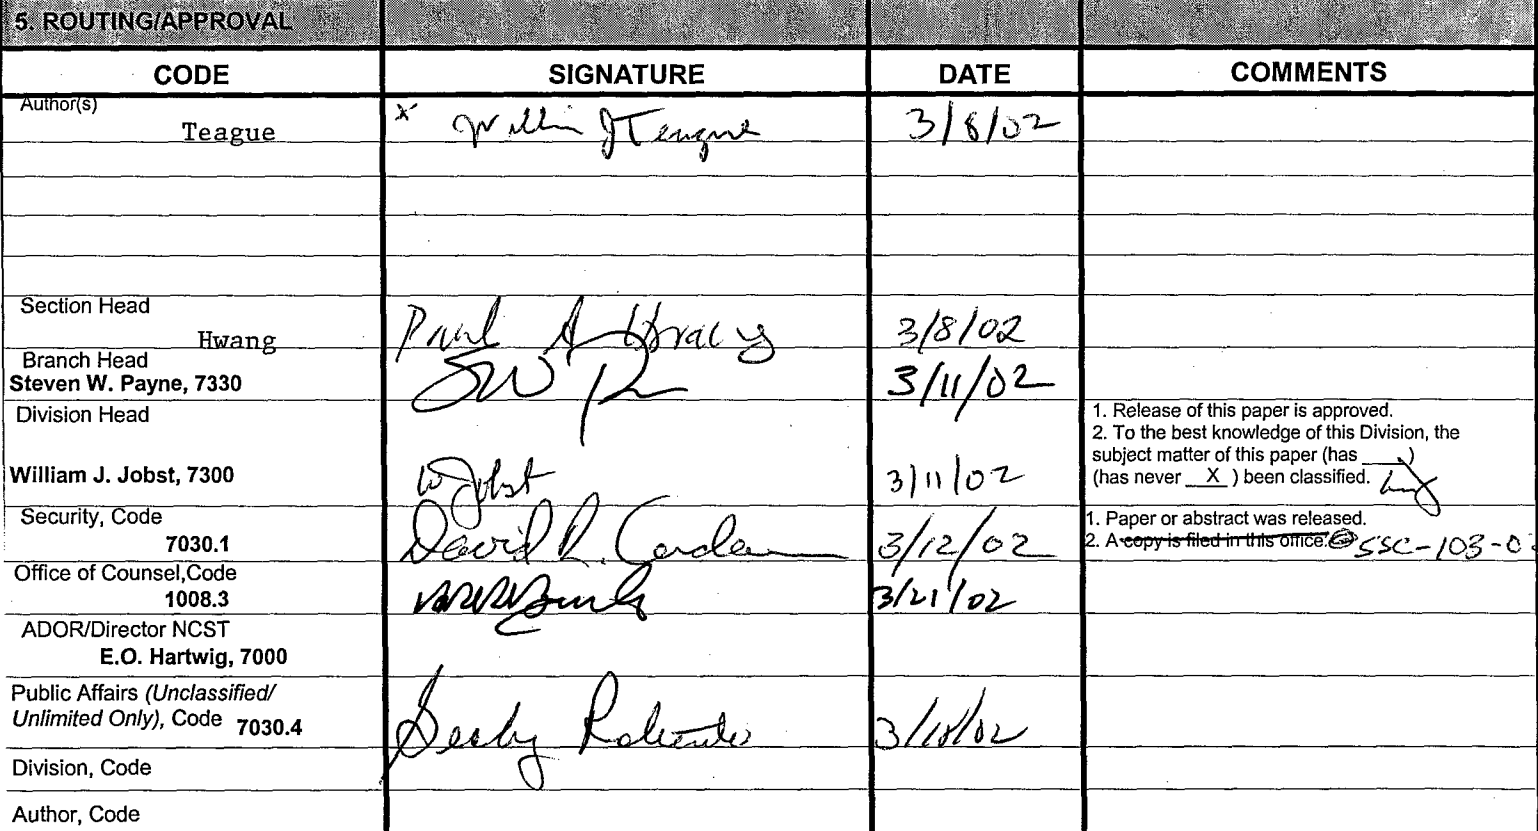 5. ROUTING/APPROVAL
CODE SIGNATURE DATE COMMENTS
Author(s)
Teague x William J Teague 3/8/02
Section Head
Hwang Paul A Hwang 3/8/02
Branch Head
Steven W. Payne, 7330 SW P 3/11/02
Division Head
1. Release of this paper is approved.
2. To the best knowledge of this Division, the
subject matter of this paper (has ___)
William J. Jobst, 7300 W Jobst 3/11/02 (has never X ) been classified.
Security, Code
7030.1 David R. 3/12/02
1. Paper or abstract was released.
2. A copy is filed in this office. SSC-103-0
Office of Counsel,Code
1008.3 3/21/02
ADOR/Director NCST
E.O. Hartwig, 7000
Public Affairs (Unclassified/
Unlimited Only), Code 7030.4
Division, Code
Author, Code